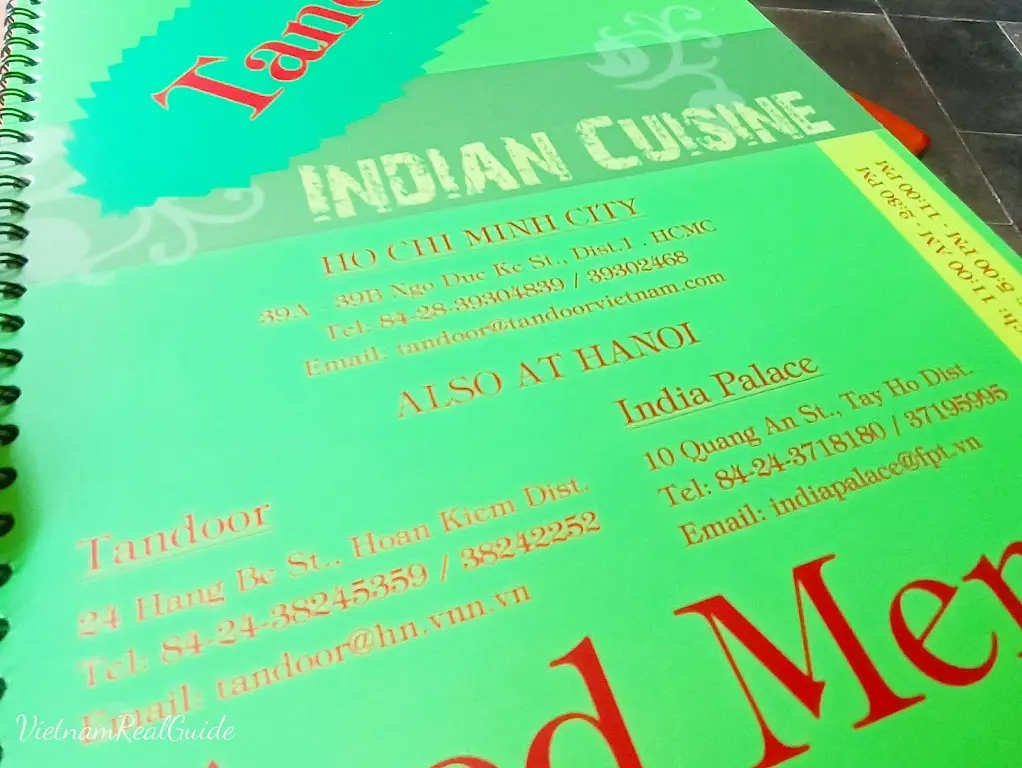 Tand
INDIAN CUISINE
HO CHI MINH CITY
39A - 39B Ngo Duc Ke St., Dist.1 . HCMC
Tel: 84-28-39304839 / 39302468
Email: tandoor@tandoorvietnam.com
ch: 11:00 AM - 2:30 PM
: 5:00 PM - 11:00 PM
ALSO AT HANOI
India Palace
10 Quang An St., Tay Ho Dist.
Tel: 84-24-3718180 / 37195995
Email: indiapalace@fpt.vn
Tandoor
24 Hang Be St., Hoan Kiem Dist.
Tel: 84-24-38245359 / 38242252
Email: tandoor@hn.vnn.vn
od Men
VietnamRealGuide